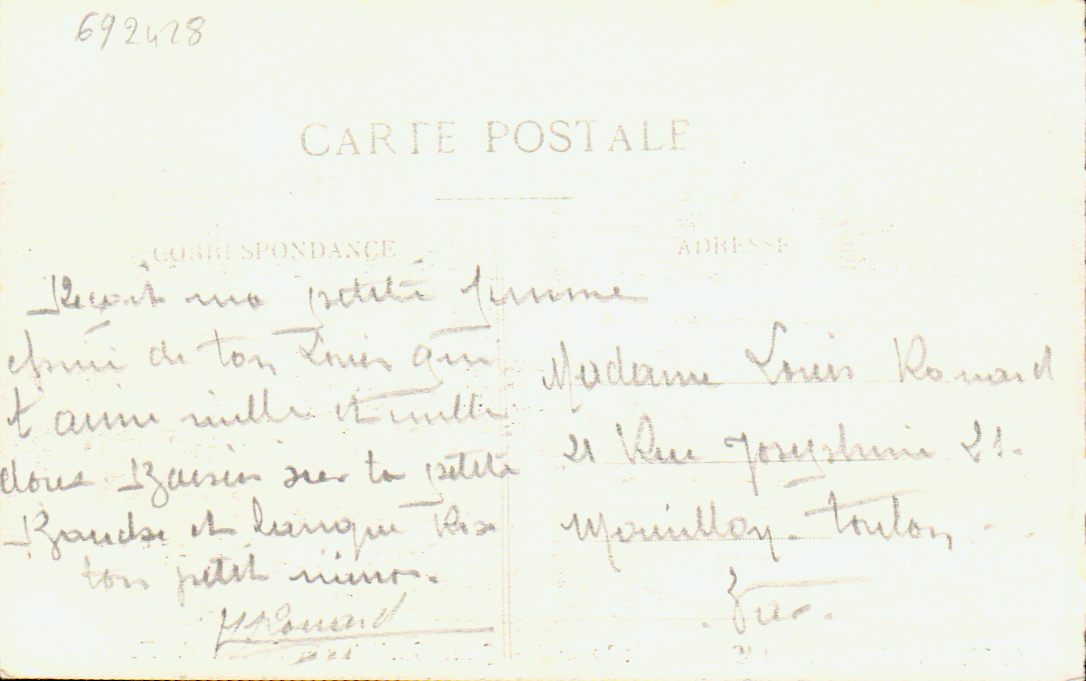 692428
CARTE POSTALE
CORRESPONDANCE
ADRESSE
Reçoit ma petite femme
chérie de ton Louis qui
t aime mille et mille
doux Baisers sur ta petite
Bouche et langue
ton petit
Madame Louis Rouard
21 Rue Joséphine 21.
Mourillon - Toulon
. Var.